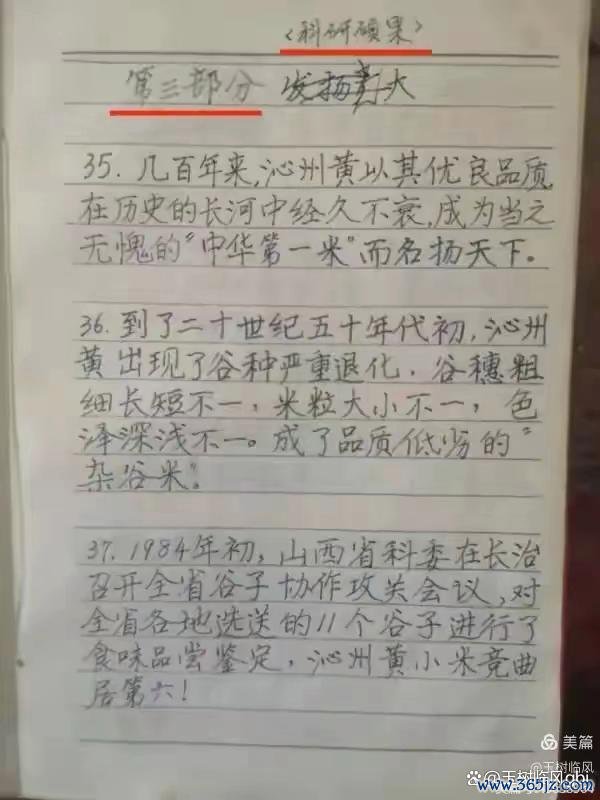 〈科研硕果〉
第三部分 发扬光大
35. 几百年来,沁州黄以其优良品质
在历史的长河中经久不衰,成为当之
无愧的"中华第一米"而名扬天下。
36. 到了二十世纪五十年代初,沁州
黄出现了谷种严重退化,谷穗粗
细长短不一,米粒大小不一,色
泽深浅不一。成了品质低劣的"
杂谷米"。
37. 1984年初,山西省科委在长治
召开全省谷子协作攻关会议,对
全省各地选送的11个谷子进行了
食味品尝鉴定,沁州黄小米竞曲
居第六!
美篇
@玉树临风
@玉树临风gbj
www.365jz.com